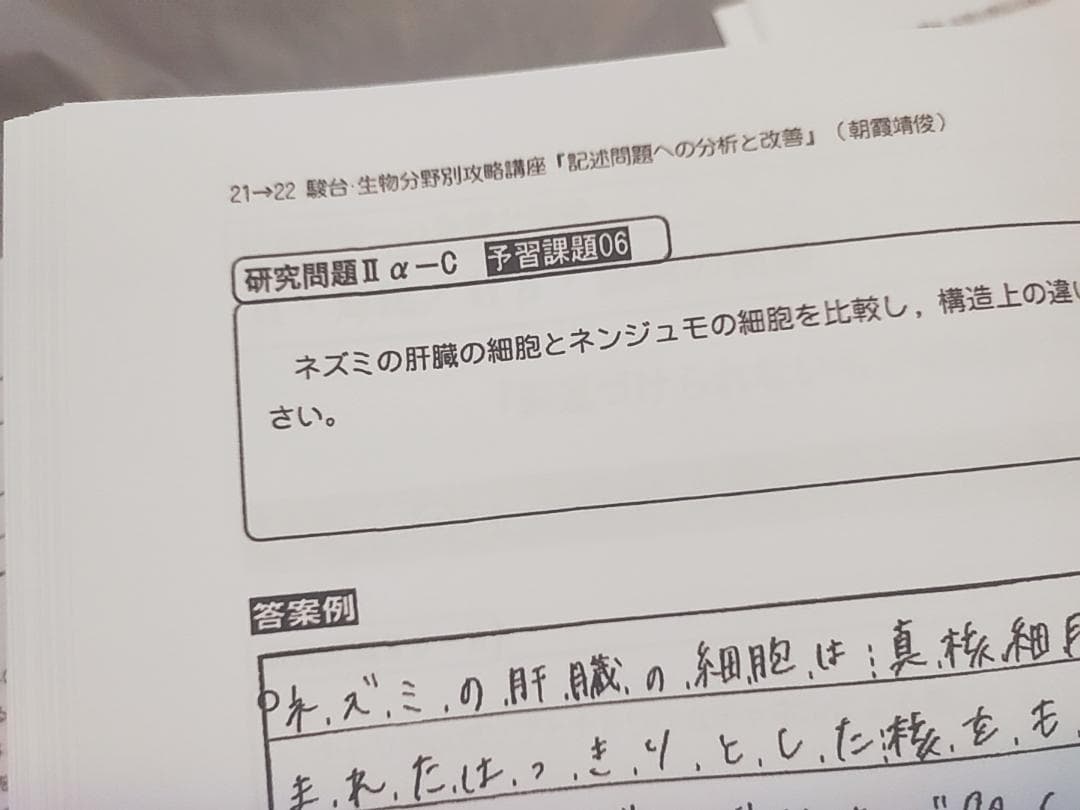 21→22 駿台·生物分野別攻略講座『記述問題への分析と改善』（朝霞靖俊）
研究問題Ⅱα－C 予習課題06
ネズミの肝臓の細胞とネンジュモの細胞を比較し，構造上の違い
さい。
答案例
ネズミの肝臓の細胞は：真核細胞
まれたはっきりとした核をも